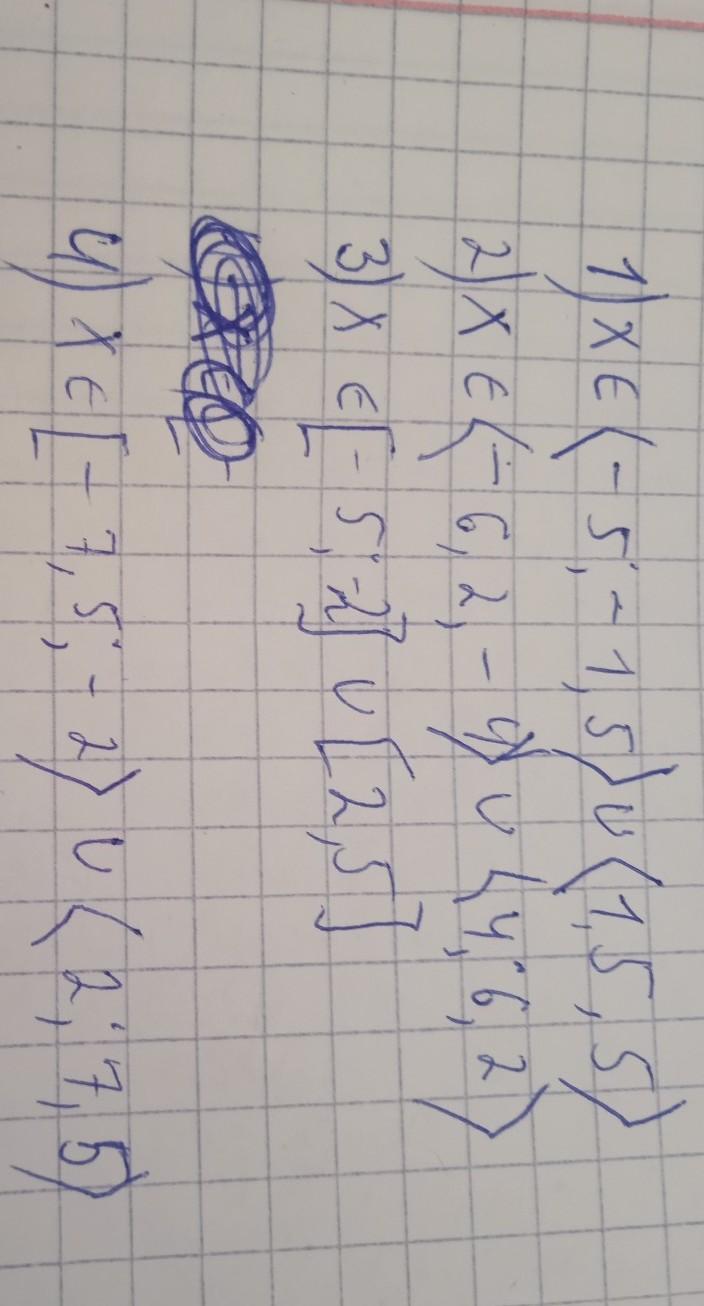 1) x ∈ ⟨-5; -1,5⟩ ∪ ⟨1,5, 5⟩
2) x ∈ ⟨-6,2, -4⟩ ∪ ⟨4; 6,2⟩
3) x ∈ [-5; -2] ∪ [2,5]
4) x ∈ [-7,5; -2⟩ ∪ ⟨2; 7,5⟩